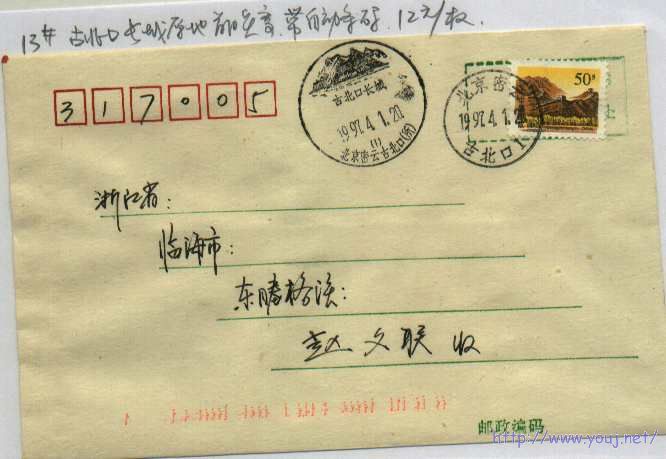 13# 古北口长城原地 12元/枚.
317005
古北口长城
1997.4.1.20
(1)
北京密云古北口(所)
50分
北京密云
1997.4.1.20
古北口1
浙江省:
临海市:
东塍格溪:
赵文联 收
邮政编码
http://www.youj.net/